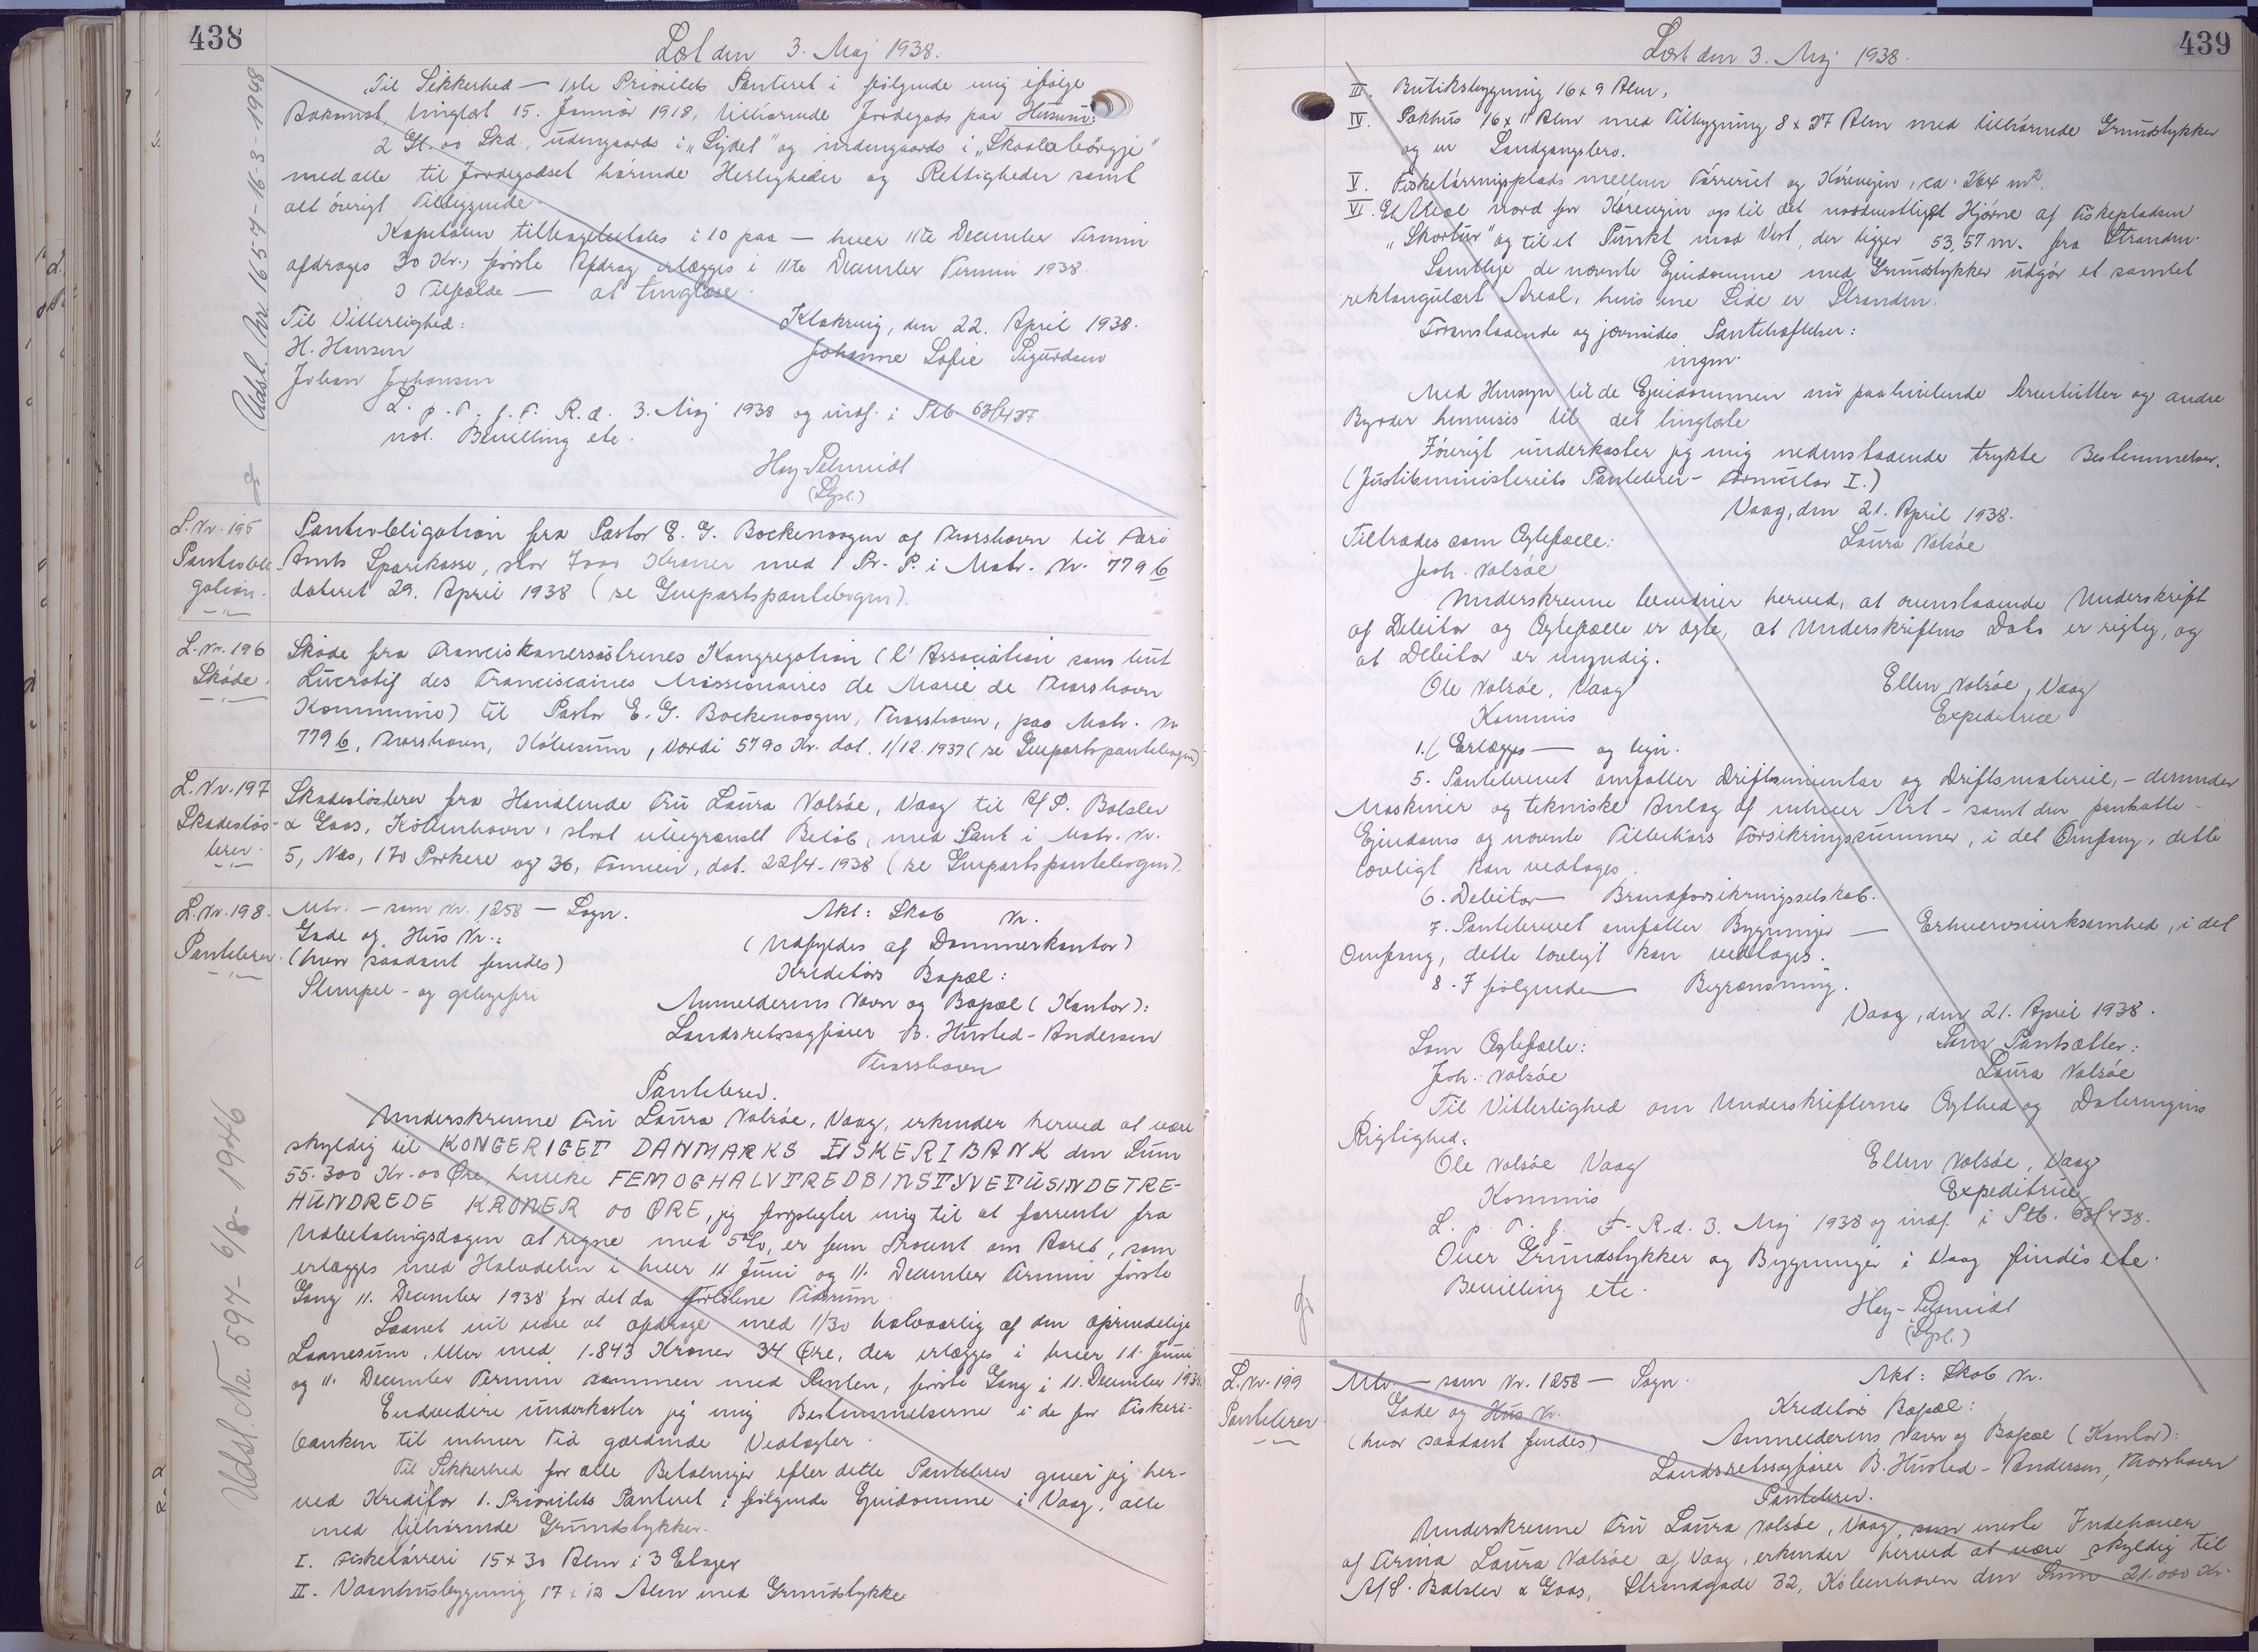 438
Læst den 3. Maj 1938.
Til Sikkerhed — 1ste Prioritets Panteret i følgende mig ifølge
Adkomst, tinglæst 15. Januar 1918, tilhørende Jordegods paa Husum:
2 Gl. 00 Skd. udengaards i „Sydet" og indengaards i „Skaalabörgji"
med alle til Jordegodset hørende Herligheder og Rettigheder samt
alt övrigt Tilliggende.
Kapitalen tilbagebetales i 10 paa — hver 11te December Termin
afdrages 30 Kr., første Afdrag erlægges i 11te December Termin 1938.
I Tilfælde — at tinglæse.
Til Vitterlighed:
Klaksvig, den 22. April 1938.
H. Hansen
Johanne Sofie Sigurdsen
Johan Johansen
L. p. T. f. F. R. d. 3. Maj 1938 og indf. i Ptb 63/437
vol. Bevilling etc.
Hay-Schmidt
(Gpl.)
Udsl. Nr. 1654-16-3-1948
L. Nr. 195
Pantobli-
gation.
Pantobligation fra Pastor E. G. Bockenoogen af Thorshavn til Færø
Amts Sparekasse, stor 7000 Kroner med 1 Pr. P. i Matr. Nr. 779 b
dateret 29. April 1938 (se Genpartspantebogen).
L. Nr. 196
Skøde.
Skøde fra Franciskanersøstrenes Kongregation (l'Association sans but
Lucratif des Franciscaines Missionaires de Marie de Thorshavn
Kommune) til Pastor E. G. Bockenoogen, Thorshavn, paa Matr. Nr
779 b, Thorshavn, Købesum, Værdi 5790 Kr. dat. 1/12. 1937 (se Genpartspantebogen)
L. Nr. 197
Skadesløs-
brev.
Skadesløsbrev fra Handlende Fru Laura Valsøe, Vaag til A/S. Balslev
& Gaas, København, stort ubegrænset Beløb, med Pant i Matr. Nr.
5, Næs, 170 Porkere og 36, Famien, dat. 22/4-1938 (se Genpartspantebogen).
L. Nr. 198.
Pantebrev.
Mtr. — som Nr. 1258 — Sogn.
Akt: Skab Nr.
Gade og Hus Nr.:
(Udfyldes af Dommerkontor)
(hvor saadant findes)
Kreditors Bopæl:
Stempel- og gebyrfri
Anmelderens Navn og Bopæl (Kontor):
Landsretssagfører B. Husted-Andersen
Thorshavn
Pantebrev.
Underskrevne Fru Laura Valsøe, Vaag, erkender herved at være
skyldig til KONGERIGET DANMARKS FISKERIBANK den Sum
55.300 Kr. 00 Øre, hvilke FEMOGHALVTREDSINSTYVETUSINDETRE-
HUNDREDE KRONER 00 ØRE, jeg forpligter mig til at forrente fra
Udbetalingsdagen at regne med 5%, er fem Procent om Aaret, som
erlægges med Halvdelen i hver 11 Juni og 11. December Termin første
Gang 11. December 1938 for det da forløbne Tidsrum.
Laanet vil være at afdrage med 1/30 halvaarlig af den oprindelige
Laanesum, eller med 1.843 Kroner 34 Øre, der erlægges i hver 11. Juni
og 11. December Termin sammen med Renten, første Gang i 11. December 1938.
Endvidere underkaster jeg mig Bestemmelserne i de for Fiskeri-
banken til enhver Tid gældende Vedtægter.
Til Sikkerhed for alle Betalinger efter dette Pantebrev giver jeg her-
ved Kreditor 1. Prioritets Panteret i følgende Ejendomme i Vaag, alle
med tilhørende Grundstykker.
I. Fisketørreri 15 x 30 Alen i 3 Etager
II. Vaanhusbygning 17 x 12 Alen med Grundstykke
Udsl. Nr. 594- 6/8- 1946
439
Læst den 3. Maj 1938.
III. Butiksbygning 16 x 9 Alen,
IV. Pakhus 16 x 11 Alen med Tilbygning 8 x 27 Alen med tilhørende Grundstykker
og en Landgangsbro.
V. Fisketørringsplads mellem Tørreriet og Kørevejen, ca. 264 m2.
VI. Et Areal nord for Kørevejen op til det nordvestligst Hjørne af Fiskepladsen
„Skortur" og til et Punkt mod Vest, der ligger 53,57 m. fra Stranden.
Samtlige de nævnte Ejendomme med Grundstykker udgør et samlet
rektangulært Areal, hvis ene Side er Stranden.
Foranstaaende og jævnsides Pantehæftelser:
ingen.
Med Hensyn til de Ejendommen nu paahvilende Servitutter og andre
Byrder henvises til det tinglæste
Iøvrigt underkaster jeg mig nedenstaaende trykte Bestemmelser.
(Justitsministeriets Pantebrev-Formular I.)
Vaag, den 21. April 1938.
Tiltrædes som Ægtefælle:
Laura Valsøe
Joh. Valsøe
Underskrevne bevidner herved, at ovenstaaende Underskrift
af Debitor og Ægtefælle er ægte, at Underskriftens Dato er rigtig, og
at Debitor er myndig.
Ole Valsøe, Vaag
Ellen Valsøe, Vaag
Kommis
Expeditrice
1.( Erlægges — og lign.
5. Pantebrevet omfatter Driftsinventar og Driftsmateriel, - derunder
Maskiner og tekniske Anlæg af enhver Art - samt den pantsatte
Ejendoms og nævnte Tilbehørs Forsikringssummer, i det Omfang, dette
lovligt kan vedtages.
6. Debitor — Brandforsikringsselskab.
7. Pantebrevet omfatter Bygninger — Erhvervsvirksomhed, i det
Omfang, dette lovligt kan vedtages.
8. I følgende — Begrænsning.
Vaag, den 21. April 1938.
Som Ægtefælle:
Som Pantsætter:
Joh. Valsøe
Laura Valsøe
Til Vitterlighed om Underskrifternes Ægthed og Dateringens
Rigtighed:
Ole Valsøe Vaag
Ellen Valsøe, Vaag
Kommis
Expeditrice
L. p. T. f. F. R. d. 3. Maj 1938 og indf. i Ptb. 63/438.
Over Grundstykker og Bygninger i Vaag findes etc.
Bevilling etc.
Hay-Schmidt
(Gpl.)
L. Nr. 199
Pantebrev
Mtr. — som Nr. 1258 — Sogn.
Akt: Skab Nr.
Gade og Hus Nr.
Kreditors Bopæl:
(hvor saadant findes)
Anmelderens Navn og Bopæl (Kontor):
Landsretssagfører B. Husted-Andersen, Thorshavn
Pantebrev.
Underskrevne Fru Laura Valsøe, Vaag, som eneste Indehaver
af Firma Laura Valsøe af Vaag, erkender herved at være skyldig til
A/S. Balslev & Gaas, Strandgade 32, København den Sum 21.000 Kr.